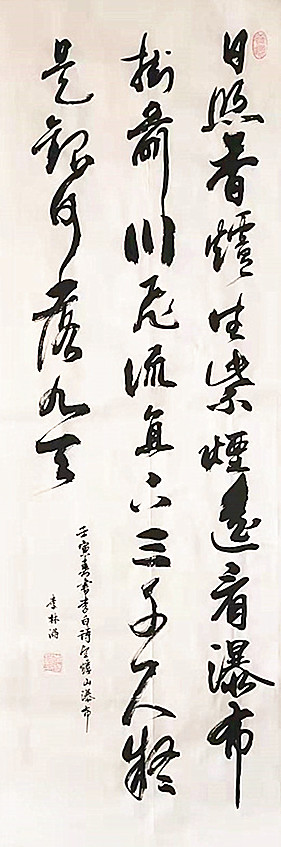 日照香爐生紫煙遥看瀑布
掛前川飛流直下三千尺疑
是銀河落九天
壬寅春书李白詩望廬山瀑布
李林